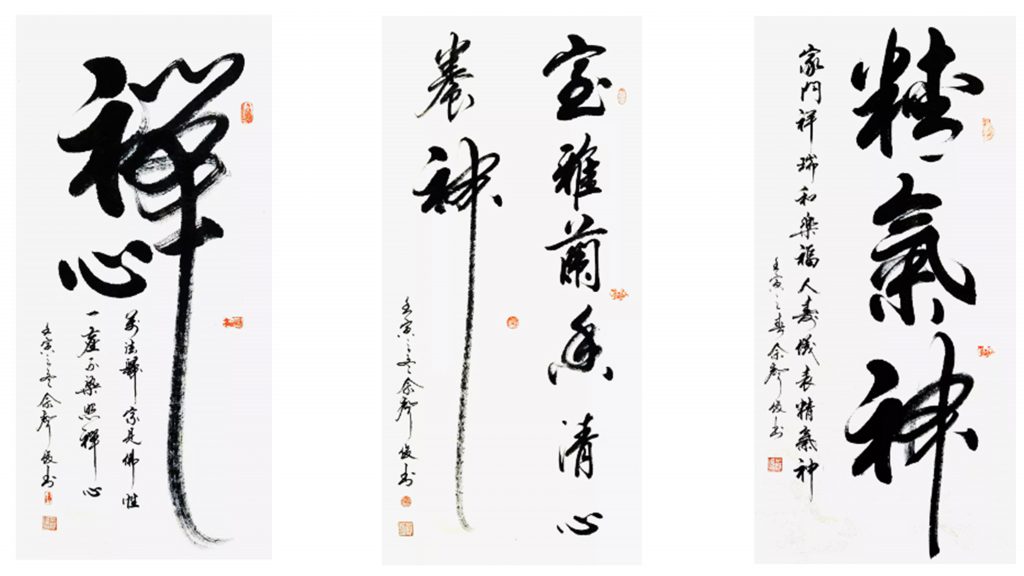 禪心
萬法歸宗見佛性
一塵不染照禪心
壬寅之冬余俊書
室雅蘭香清心
養神
壬寅之冬余俊書
精氣神
家門祥瑞和樂福人壽儀表精氣神
壬寅之春余俊書